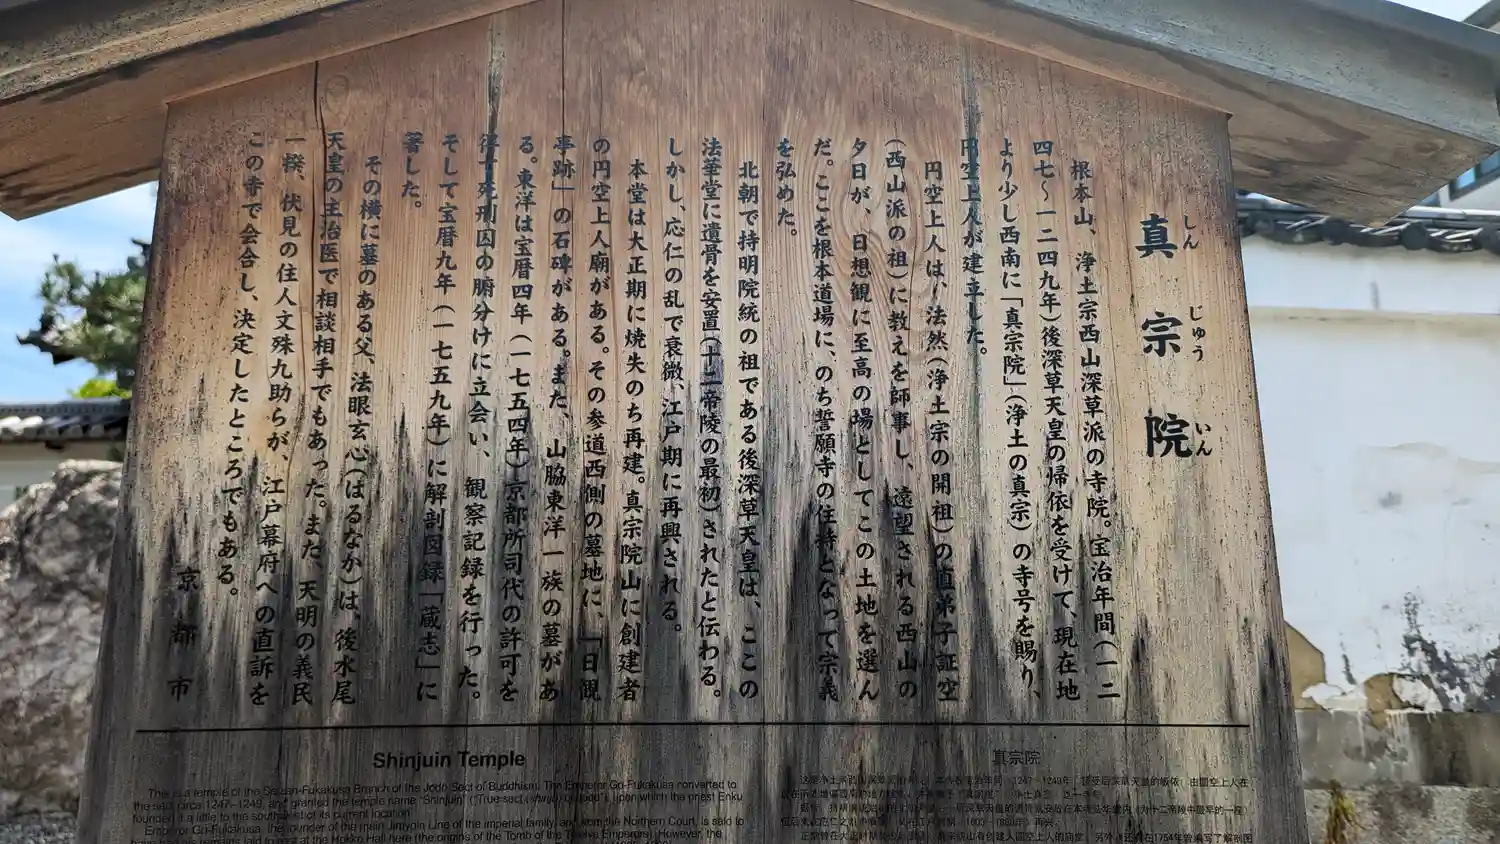 真宗院
しんじゅういん
根本山、浄土宗西山深草派の寺院。宝治年間(一二
四七～一二四九年)後深草天皇の帰依を受けて、現在地
より少し西南に「真宗院」(浄土の真宗)の寺号を賜り、
円空上人が建立した。
円空上人は、法然(浄土宗の開祖)の直弟子証空
(西山派の祖)に教えを師事し、遠望される西山の
夕日が、日想観に至高の場としてこの土地を選ん
だ。ここを根本道場に、のち誓願寺の住持となって宗義
を弘めた。
北朝で持明院統の祖である後深草天皇は、ここの
法華堂に遺骨を安置(十二帝陵の最初)されたと伝わる。
しかし、応仁の乱で衰微、江戸期に再興される。
本堂は大正期に焼失のち再建。真宗院山に創建者
の円空上人廟がある。その参道西側の墓地に、「日観
亭跡」の石碑がある。また、山脇東洋一族の墓があ
る。東洋は宝暦四年(一七五四年)京都所司代の許可を
得て死刑囚の腑分けに立会い、観察記録を行った。
そして宝暦九年(一七五九年)に解剖図録「蔵志」に
著した。
その横に墓のある父、法眼玄心(はるなか)は、後水尾
天皇の主治医で相談相手でもあった。また、天明の義民
一揆、伏見の住人文殊九助らが、江戸幕府への直訴を
この寺で会合し、決定したところでもある。
京都市
Shinjuin Temple
This is a temple of the Seizan-Fukakusa Branch of the Jodo Sect of Buddhism. The Emperor Go-Fukakusa converted to
the sect circa 1247–1249, and granted the temple name "Shinjuin" ("True sect always outside"), upon which the priest Enku
founded it a little to the southwest of its current location.
Emperor Go-Fukakusa, the founder of the main Jimyoin Line of the imperial family, and from the Northern Court, is said to
have had his remains laid to rest at the Hokko Hall here (the origins of the Tomb of the Twelve Emperors). However, the
真宗院